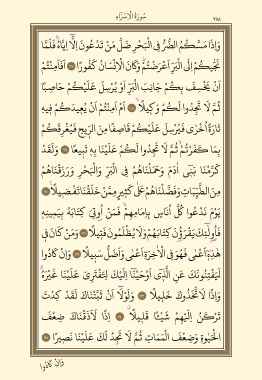 سُورَةُ الْإِسْرَاءِ
وَاِذَا مَسَّكُمُ الضُّرُّ فِي الْبَحْرِ ضَلَّ مَنْ تَدْعُونَ اِلَّٓا اِيَّاهُۚ فَلَمَّا
نَجّٰيكُمْ اِلَى الْبَرِّ اَعْرَضْتُمْۜ وَكَانَ الْاِنْسَانُ كَفُورًا ۝ اَفَاَمِنْتُمْ
اَنْ يَخْسِفَ بِكُمْ جَانِبَ الْبَرِّ اَوْ يُرْسِلَ عَلَيْكُمْ حَاصِبًا
ثُمَّ لَا تَجِدُوا لَكُمْ وَكِيلًاۙ ۝ اَمْ اَمِنْتُمْ اَنْ يُعِيدَكُمْ فِيهِ
تَارَةً اُخْرٰى فَيُرْسِلَ عَلَيْكُمْ قَاصِفًا مِنَ الرِّيحِ فَيُغْرِقَكُمْ
بِمَا كَفَرْتُمْۙ ثُمَّ لَا تَجِدُوا لَكُمْ عَلَيْنَا بِهِ تَبِيعًا ۝ وَلَقَدْ
كَرَّمْنَا بَنِٓي اٰدَمَ وَحَمَلْنَاهُمْ فِي الْبَرِّ وَالْبَحْرِ وَرَزَقْنَاهُمْ
مِنَ الطَّيِّبَاتِ وَفَضَّلْنَاهُمْ عَلٰى كَثِيرٍ مِمَّنْ خَلَقْنَا تَفْضِيلًا ۝
يَوْمَ نَدْعُوا كُلَّ اُنَاسٍ بِاِمَامِهِمْۚ فَمَنْ اُو۫تِيَ كِتَابَهُ بِيَمِينِهِ
فَاُو۬لٰٓئِكَ يَقْرَؤُ۫نَ كِتَابَهُمْ وَلَا يُظْلَمُونَ فَتِيلًا ۝ وَمَنْ كَانَ فِي
هٰذِهِٓ اَعْمٰى فَهُوَ فِي الْاٰخِرَةِ اَعْمٰى وَاَضَلُّ سَبِيلًا ۝ وَاِنْ كَادُوا
لَيَفْتِنُونَكَ عَنِ الَّذِٓي اَوْحَيْنَٓا اِلَيْكَ لِتَفْتَرِيَ عَلَيْنَا غَيْرَهُۗ
وَاِذًا لَاتَّخَذُوكَ خَلِيلًا ۝ وَلَوْلَٓا اَنْ ثَبَّتْنَاكَ لَقَدْ كِدْتَ
تَرْكَنُ اِلَيْهِمْ شَيْـًٔا قَلِيلًاۗ ۝ اِذًا لَاَذَقْنَاكَ ضِعْفَ
الْحَيٰوةِ وَضِعْفَ الْمَمَاتِ ثُمَّ لَا تَجِدُ لَكَ عَلَيْنَا نَصِيرًا ۝
وَاِنْ كَادُوا